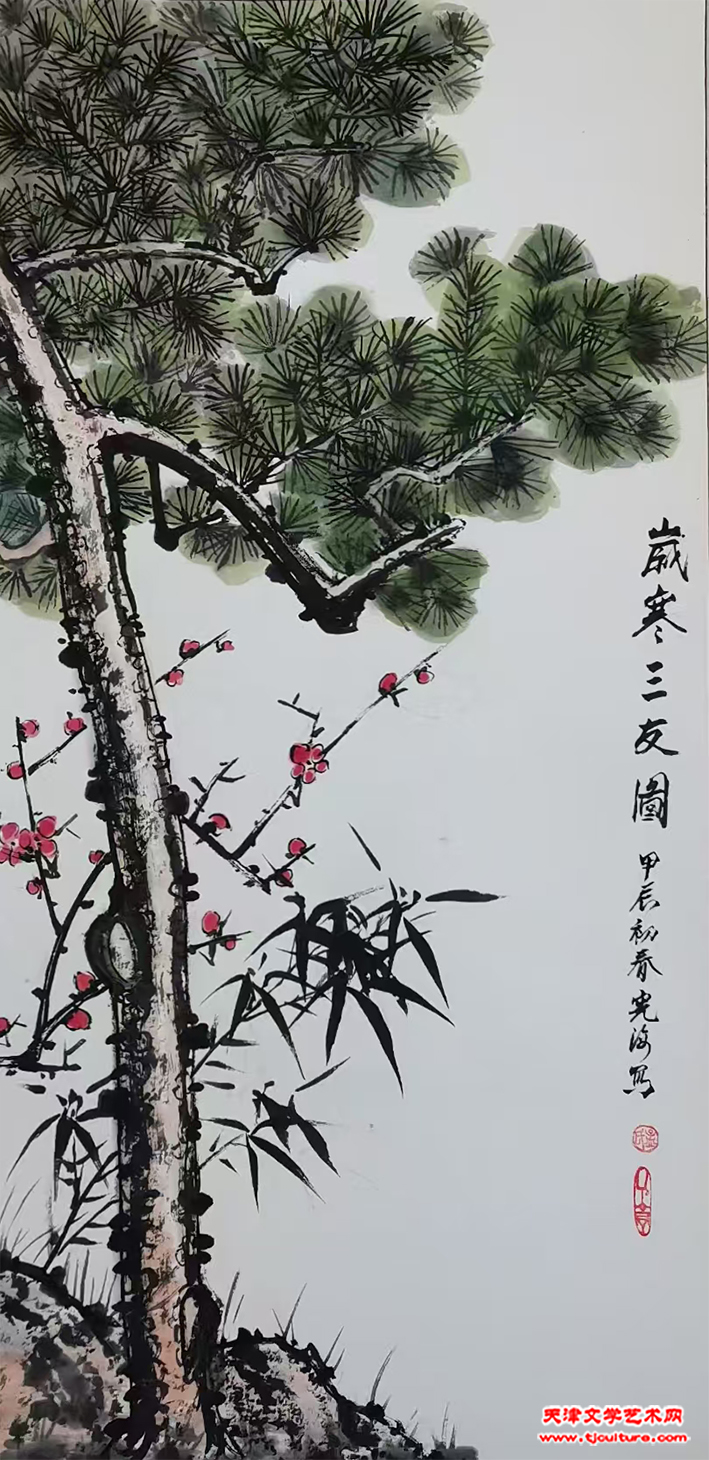 歲寒三友圖
甲辰初春光海写
天津文学艺术网
www.tjculture.com